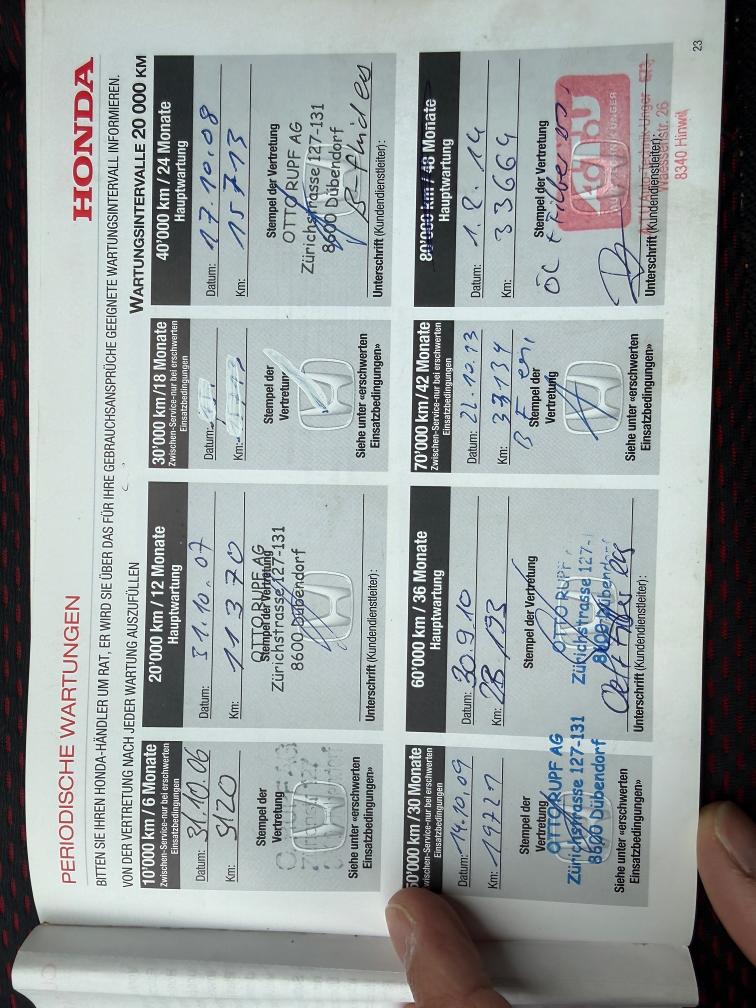 HONDA
PERIODISCHE WARTUNGEN
BITTEN SIE IHREN HONDA-HÄNDLER UM RAT, ER WIRD SIE ÜBER DAS FÜR IHRE GEBRAUCHSANSPRÜCHE GEEIGNETE WARTUNGSINTERVALL INFORMIEREN.
VON DER VERTRETUNG NACH JEDER WARTUNG AUSZUFÜLLEN
WARTUNGSINTERVALLE 20 000 KM
10'000 km / 6 Monate
Zwischen-Service-nur bei erschwerten
Einsatzbedingungen
Datum: 31.10.06
Km: 5120
Stempel der
Vertretung
Siehe unter «erschwerten
Einsatzbedingungen»
20'000 km / 12 Monate
Hauptwartung
Datum: 31.10.07
Km: 11370
Stempel der Vertretung
OTTO RUPF AG
Zürichstrasse 127-131
8600 Dübendorf
Unterschrift (Kundendienstleiter):
30'000 km/18 Monate
Zwischen-Service-nur bei erschwerten
Einsatzbedingungen
Datum:
Km:
Stempel der
Vertretung
Siehe unter «erschwerten
Einsatzbedingungen»
40'000 km / 24 Monate
Hauptwartung
Datum: 17.10.08
Km: 15713
Stempel der Vertretung
OTTO RUPF AG
Zürichstrasse 127-131
8600 Dübendorf
Unterschrift (Kundendienstleiter):
0'000 km/30 Monate
Zwischen-Service-nur bei erschwerten
Einsatzbedingungen
Datum: 14.10.09
Km: 19727
Stempel der
Vertretung
OTTO RUPF AG
Zürichstrasse 127-131
8600 Dübendorf
Siehe unter «erschwerten
Einsatzbedingungen»
60'000 km / 36 Monate
Hauptwartung
Datum: 30.9.10
Km: 28193
Stempel der Vertretung
OTTO RUPF
Zürichstrasse 127-
8600 Dübendorf
Unterschrift (Kundendienstleiter):
70'000 km/42 Monate
Zwischen-Service-nur bei erschwerten
Einsatzbedingungen
Datum: 22.10.13
Km: 33134
Stempel der
Vertretung
Siehe unter «erschwerten
Einsatzbedingungen»
80'000 km / 48 Monate
Hauptwartung
Datum: 1.8.14
Km: 33664
Stempel der Vertretung
Unterschrift (Kundendienstleiter):
8340 Hinwil
23